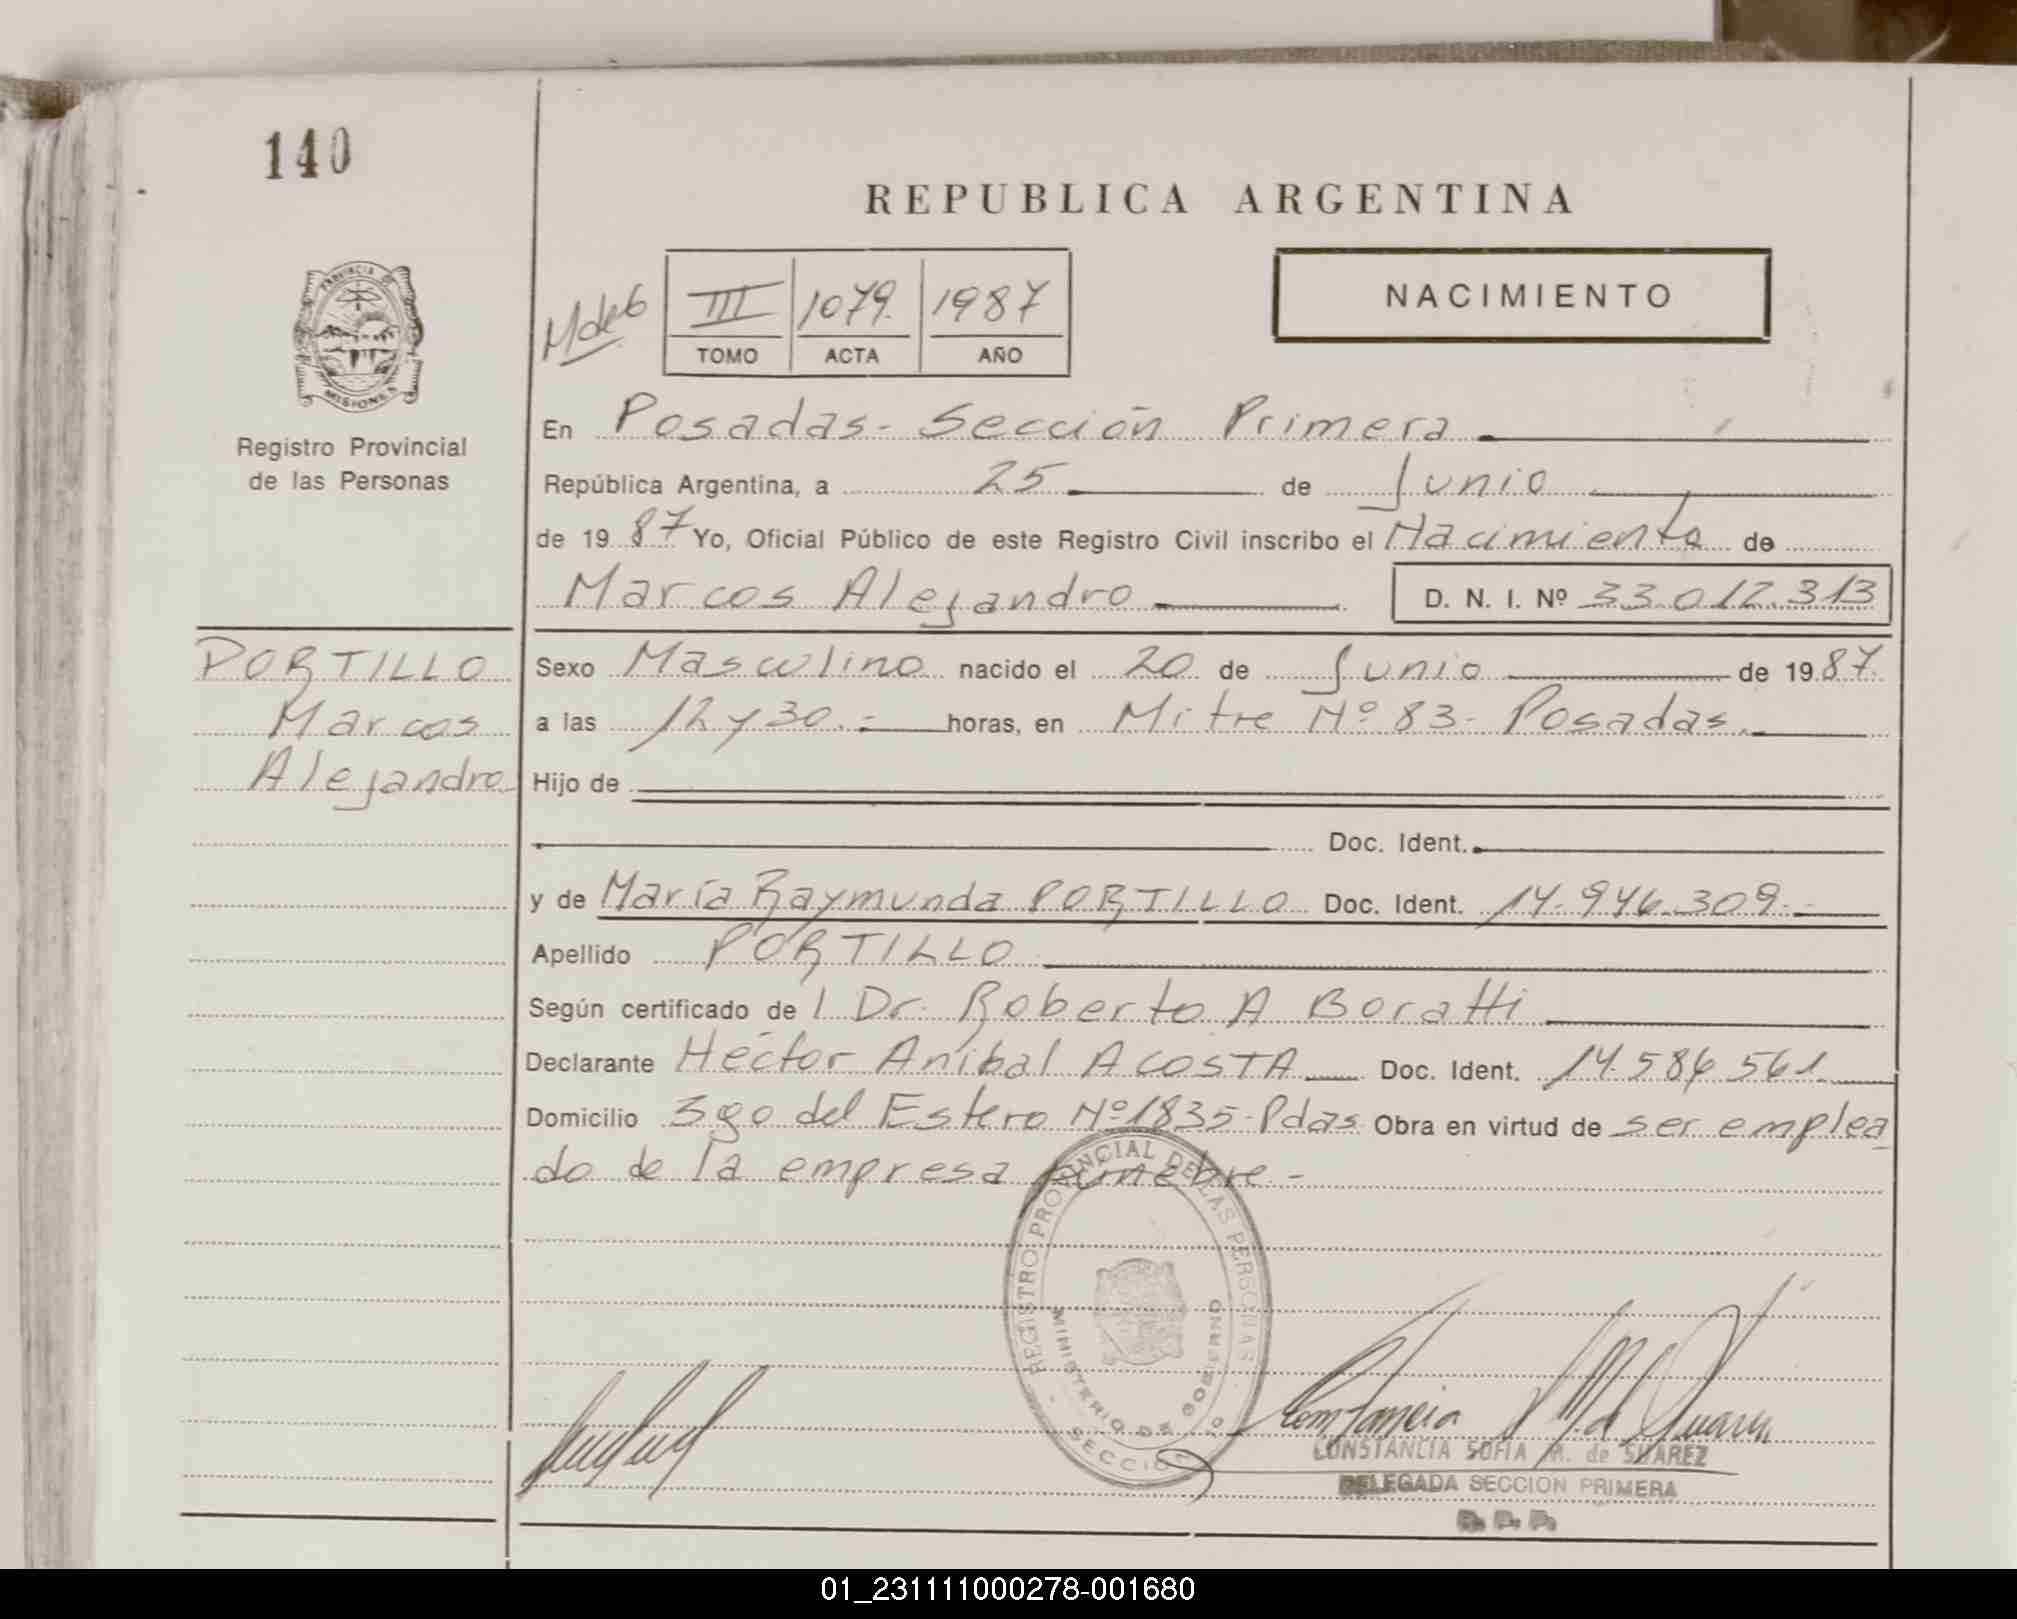 140
REPUBLICA ARGENTINA
III 1079. 1987
TOMO ACTA AÑO
NACIMIENTO
PROVINCIA DE
MISIONES
Registro Provincial
de las Personas
En Posadas - Sección Primera
República Argentina, a 25 de Junio
de 19 87 Yo, Oficial Público de este Registro Civil inscribo el Nacimiento de
Marcos Alejandro D. N. I. Nº 33.012.313
PORTILLO
Marcos
Alejandro
Sexo Masculino nacido el 20 de Junio de 19 87.
a las 12 y 30.- horas, en Mitre Nº 83 - Posadas.
Hijo de
Doc. Ident.
y de María Raymunda PORTILLO Doc. Ident. 14.946.309.-
Apellido PORTILLO
Según certificado de l Dr. Roberto A Boratti
Declarante Héctor Aníbal ACOSTA Doc. Ident. 14.586.561.
Domicilio Sgo del Estero Nº 1835 - Pdas. Obra en virtud de ser emplea
do de la empresa funebre -
REGISTRO PROVINCIAL DE LAS PERSONAS
MINISTERIO DE GOBIERNO
SECCION 1º
CONSTANCIA SOFIA M. de SUAREZ
DELEGADA SECCION PRIMERA
R. P. P.
01_231111000278-001680